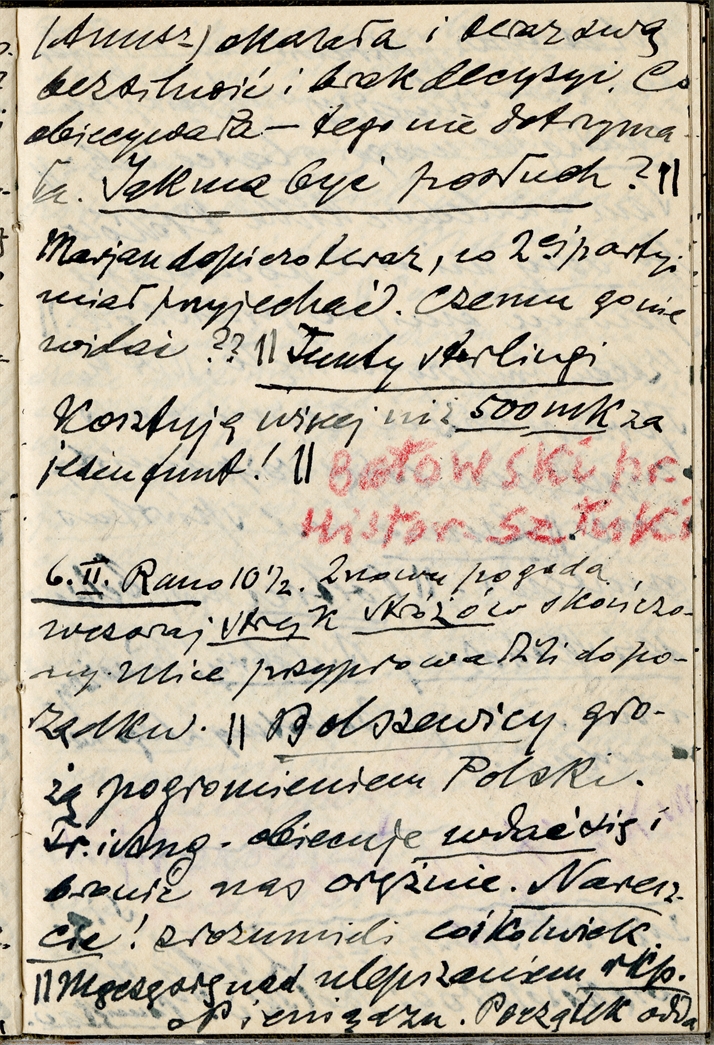 (Anusz) okazała i teraz swą
bezsilność i brak decyzyi. Co
obiecywała — tego nie dotrzyma-
ła. Jak ma być posłuch? ||
Marjan dopiero teraz, co 2ej partyi
miał przyjechać. Czemu go nie
widać ?? || Funty sterlingi
Kosztują więcej niż 500 mk za
jeden funt! || Botowski pr.
Histor Sztuki
6. II. Rano 10 1/2. Znowu pogoda
wczoraj strejk stróżów skończo-
ny. Ulice przyprowadzili do po-
rządku. || Bolszewicy gro-
żą pogromieniem Polski.
Fr. i Ang. obiecuje wdać się i
bronić nas orężnie. Naresz-
cie! zrozumieli cośkolwiek.
|| Męczę się nad ulepszaniem rkp.
o Pieniądzu. Początek odda